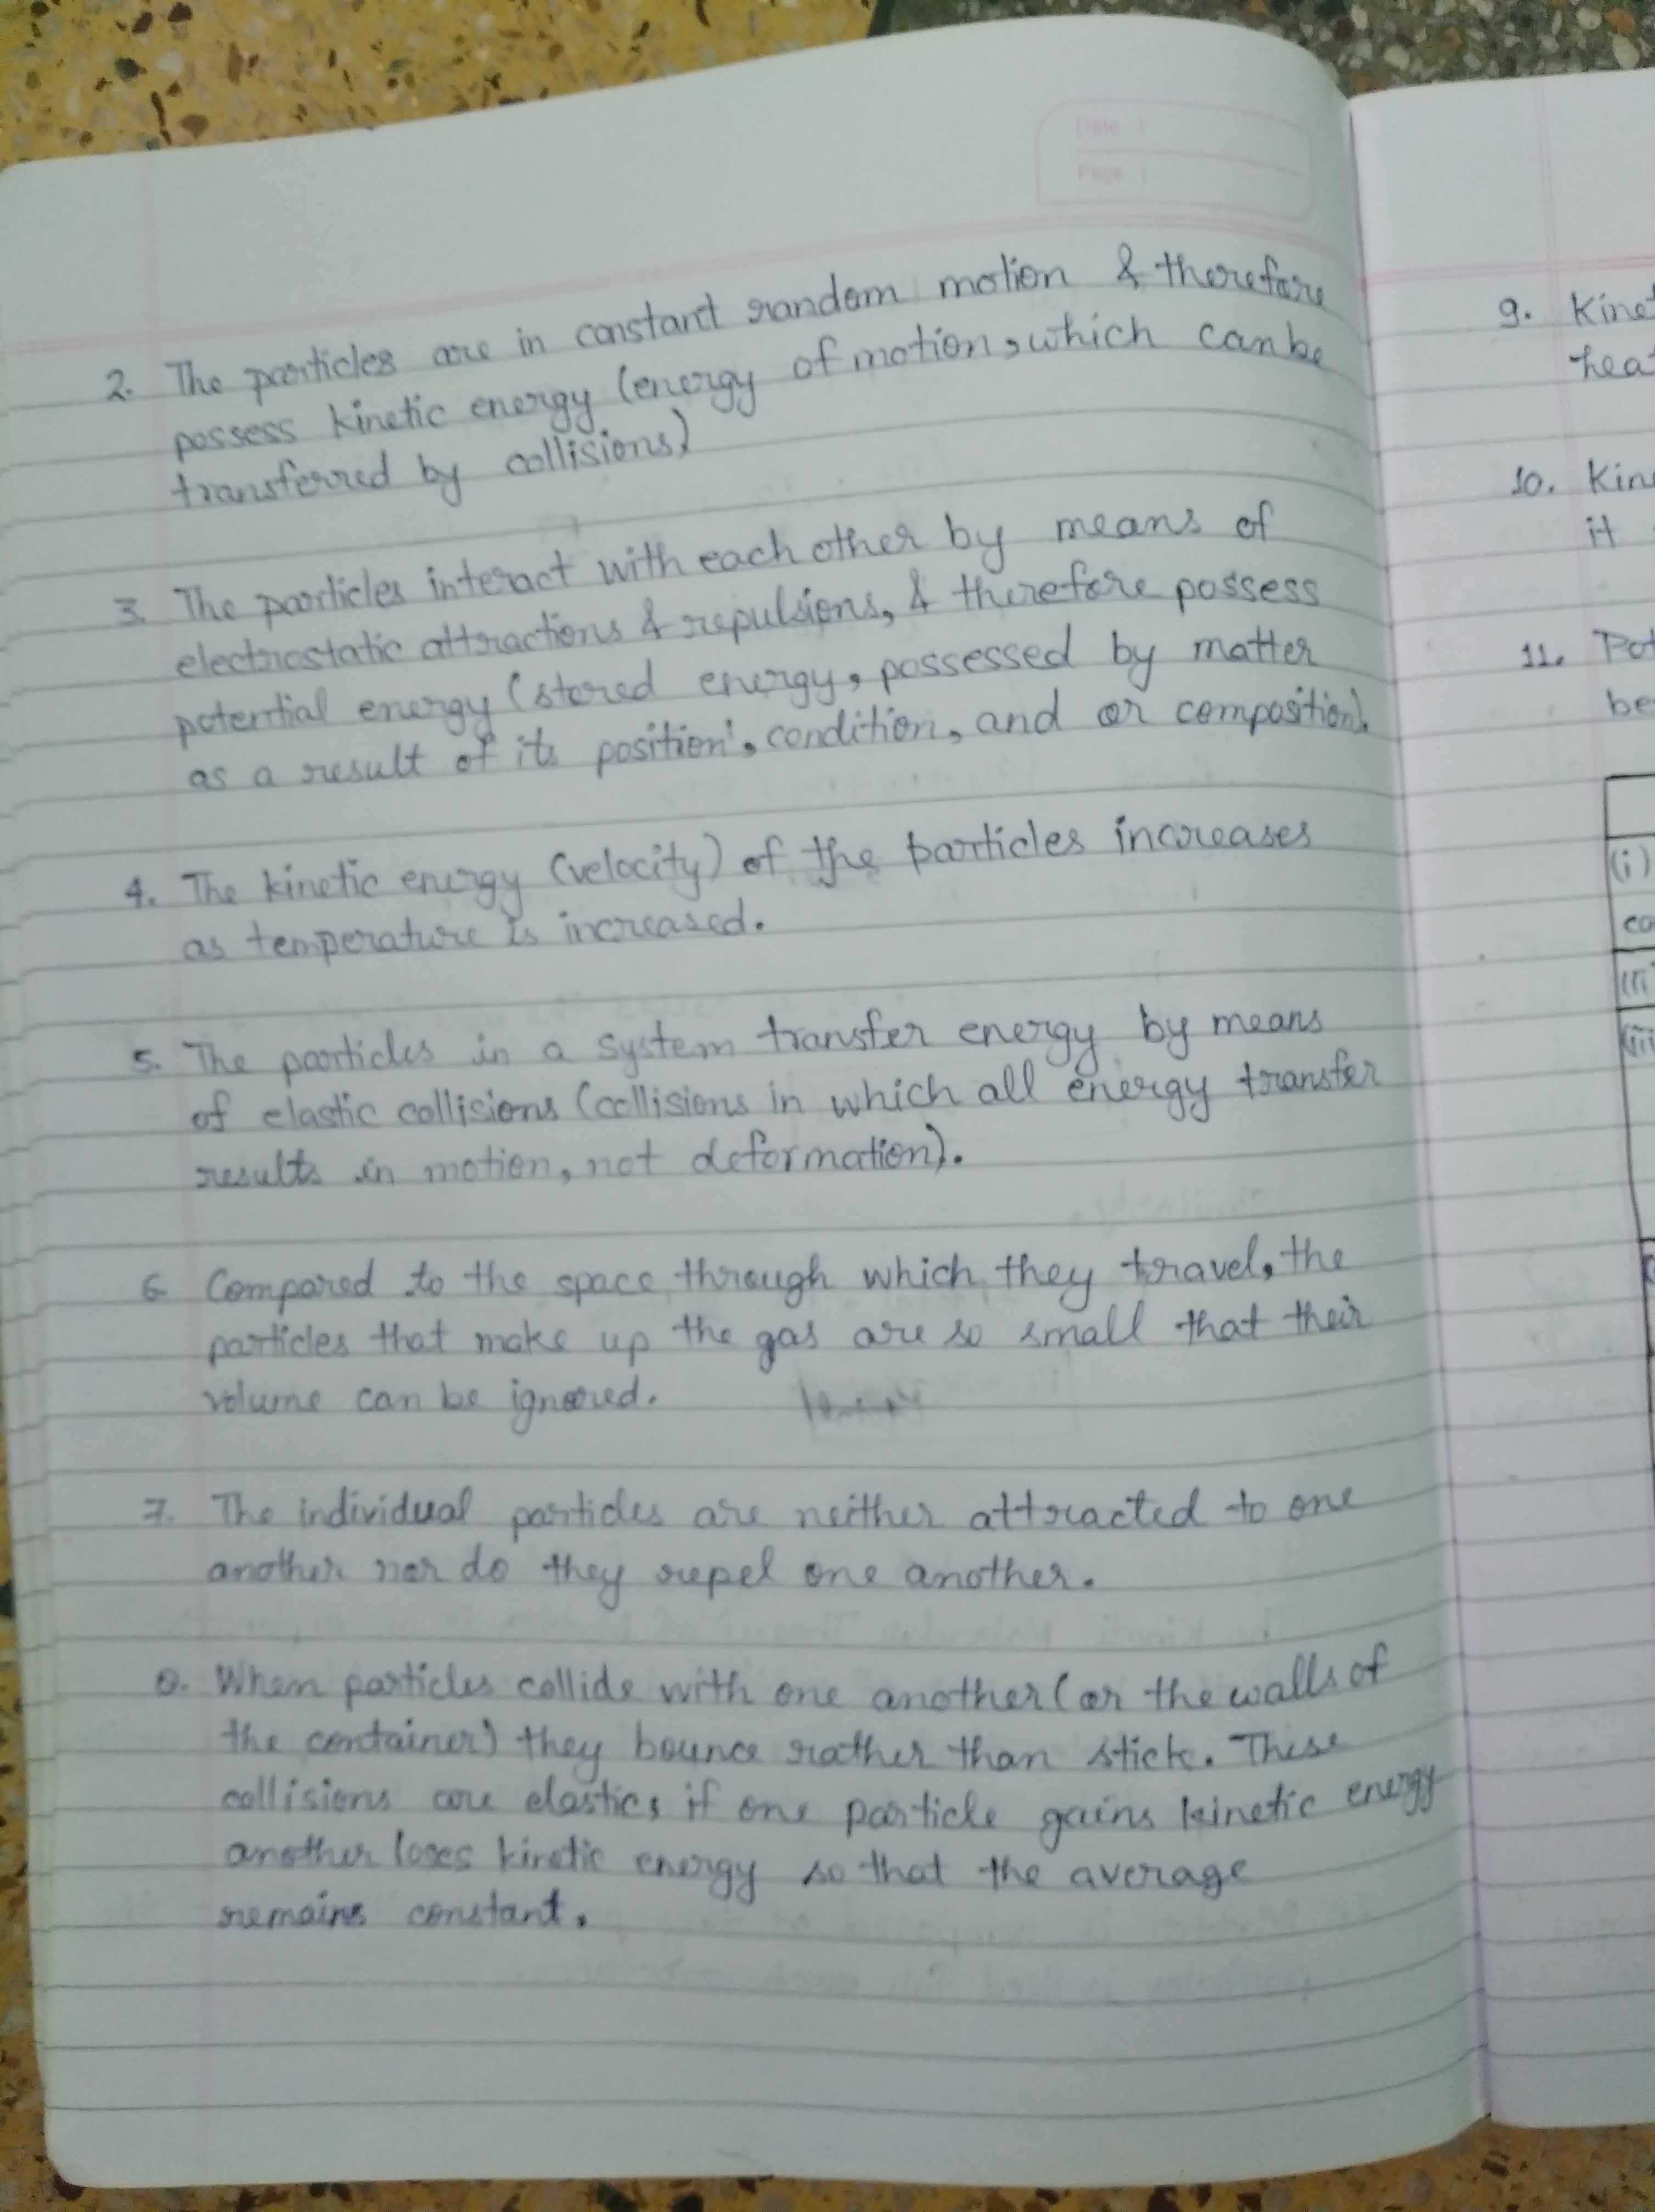 Date
Page
2. The particles are in constant random motion & therefore
possess kinetic energy (energy of motion, which can be
transferred by collisions)
3. The particles interact with each other by means of
electrostatic attractions & repulsions, & therefore possess
potential energy (stored energy, possessed by matter
as a result of its position, condition, and or composition).
4. The kinetic energy (velocity) of the particles increases
as temperature is increased.
5. The particles in a system transfer energy by means
of elastic collisions (collisions in which all energy transfer
results in motion, not deformation).
6. Compared to the space through which they travel, the
particles that make up the gas are so small that their
volume can be ignored.
7. The individual particles are neither attracted to one
another nor do they repel one another.
8. When particles collide with one another (or the walls of
the container) they bounce rather than stick. These
collisions are elastic, if one particle gains kinetic energy
another loses kinetic energy so that the average
remains constant.
9. Kinet
heat
10. Kin
it
11. Pot
be
(i)
co
(ii
(iii